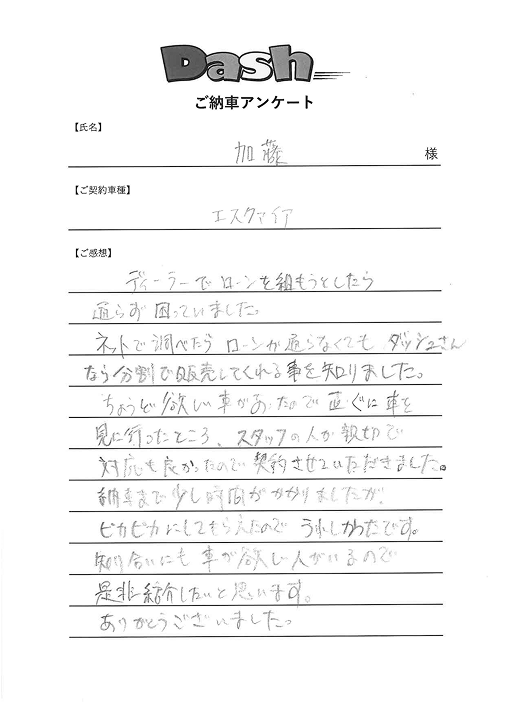 Dash
ご納車アンケート
【氏名】
加藤 様
【ご契約車種】
エスクァイア
【ご感想】
ディーラーでローンを組もうとしたら
通らず困っていました。
ネットで調べたらローンが通らなくてもダッシュさん
なら分割で販売してくれる事を知りました。
ちょうど欲しい車があったので直ぐに車を
見に行ったところ、スタッフの人が親切で
対応も良かったので契約させていただきました。
納車まで少し時間がかかりましたが、
ピカピカにしてもらえたのでうれしかったです。
知り合いにも車が欲しい人がいるので
是非紹介したいと思います。
ありがとうございました。